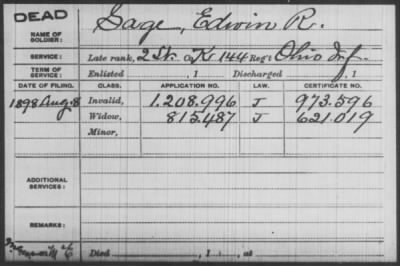 DEAD
NAME OF SOLDIER: Sage, Edwin R.
SERVICE: Late rank, 2 Lt. Co. K, 144 Reg't Ohio Inf.
TERM OF SERVICE: Enlisted , 1 Discharged , 1
DATE OF FILING. CLASS. APPLICATION NO. LAW. CERTIFICATE NO.
1898 Aug. 8 Invalid, 1.208.996 J 973.596
Widow, 815.487 J 621.019
Minor,
ADDITIONAL SERVICES:
REMARKS:
Died , 1 , at